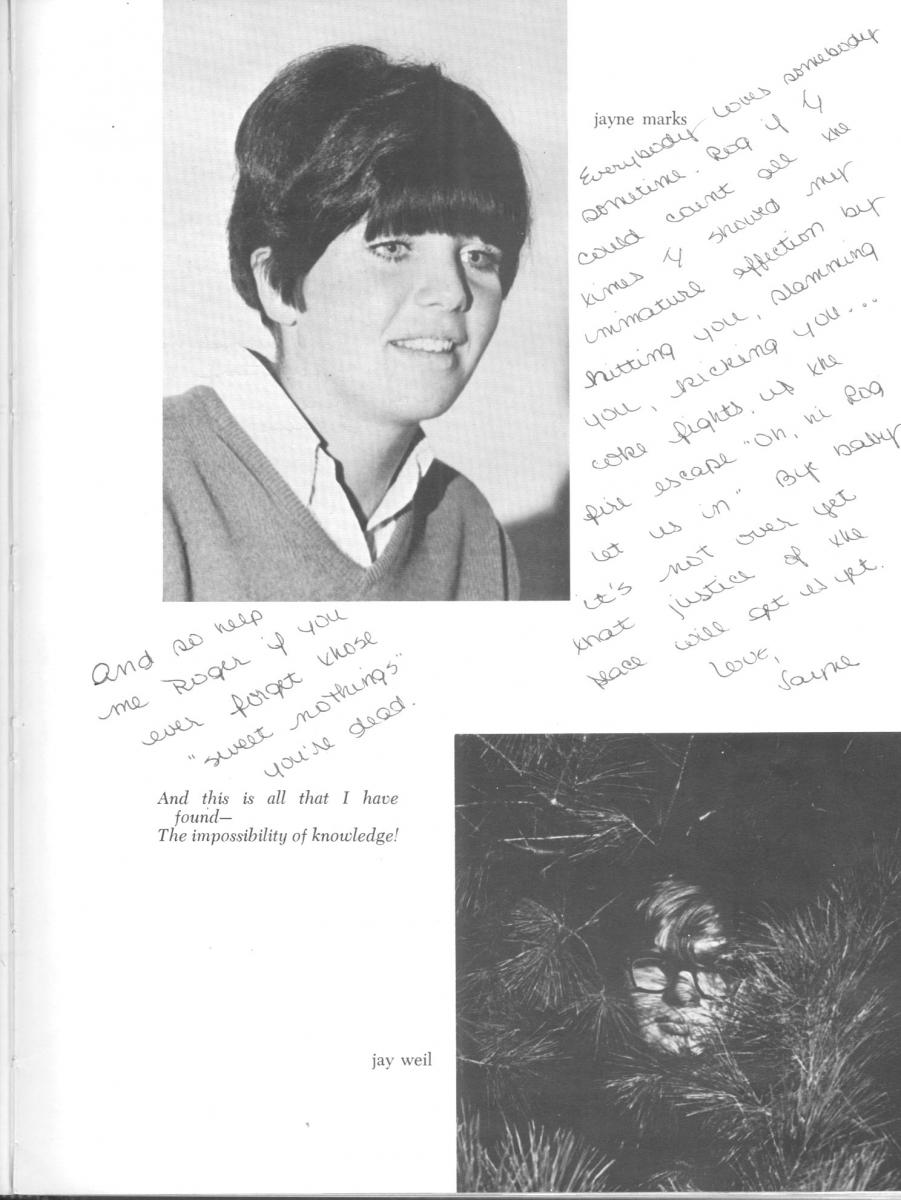 jayne marks
Everybody loves somebody
sometime. Rog if I
could count all the
times I showed my
immature affection by
hitting you, slamming
you, kicking you...
coke fights, up the
fire escape "Oh, hi Rog
let us in" Bye baby
it's not over yet
that justice of the
peace will get us yet.
Love,
Jayne
And so help
me Roger if you
ever forget those
"sweet nothings"
you're dead.
And this is all that I have
found—
The impossibility of knowledge!
jay weil